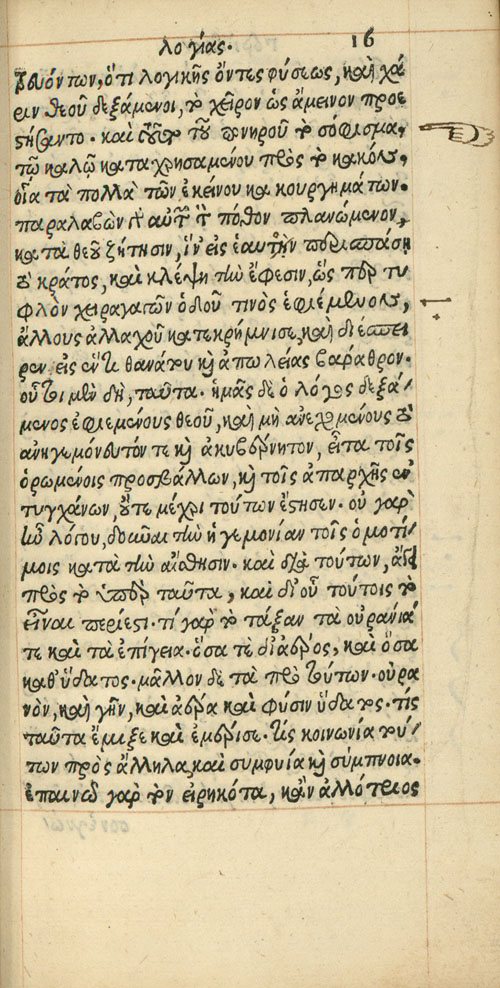 λογίας. 16
βευόντων, ὅτι λογικῆς ὄντες φύσεως, καὶ χά
ριν θεοῦ δεξάμενοι, τὸ χεῖρον ὡς ἄμεινον προε
στήσαντο. καὶ τοῦτο τοῦ πονηροῦ τὸ σόφισμα,
τῷ καλῷ καταχρησαμένου πρὸς τὸ κακόν,
οἷα τὰ πολλὰ τῶν ἐκείνου κακουργημάτων.
παραλαβὼν γὰρ αὐτῶν τὸν πόθον πλανώμενον,
κατὰ θεοῦ ζήτησιν, ἵν' εἰς ἑαυτὸν περισπάσῃ
τὸ κράτος, καὶ κλέψῃ τὴν ἔφεσιν, ὥσπερ τυ
φλὸν χειραγωγῶν ὁδοῦ τινὸς ἐφιέμενον,
ἄλλους ἀλλαχοῦ κατεκρήμνισε, καὶ διέσπει
ρεν εἰς ἕν τι θανάτου καὶ ἀπωλείας βάραθρον.
οὗτοι μὲν δὴ, ταῦτα. ἡμᾶς δὲ ὁ λόγος δεξά
μενος ἐφιεμένους θεοῦ, καὶ μὴ ἀνεχομένους τὸ
ἀνηγεμόνευτόν τε καὶ ἀκυβέρνητον, εἶτα τοῖς
ὁρωμένοις προσβάλλων, καὶ τοῖς ἀπαρχῆς ἐν
τυγχάνων, οὔτε μέχρι τούτων ἔστησεν. οὐ γὰρ
ἦν λόγου, δοῦναι τὴν ἡγεμονίαν τοῖς ὁμοτί
μοις κατὰ τὴν αἴσθησιν. καὶ διὰ τούτων, ἄγει
πρὸς τὸ ὑπὲρ ταῦτα, καὶ δι' οὗ τούτοις τὸ
εἶναι περίεστι. τί γὰρ τὸ τάξαν τὰ οὐράνιά
τε καὶ τὰ ἐπίγεια. ὅσα τε δι' ἀέρος, καὶ ὅσα
καθ' ὕδατος. μᾶλλον δὲ τὰ πρὸ τούτων. οὐρα
νὸν, καὶ γῆν, καὶ ἀέρα καὶ φύσιν ὕδατος. τίς
ταῦτα ἔμιξε καὶ ἐμέρισε. τίς κοινωνία τού
των πρὸς ἄλληλα, καὶ συμφυία καὶ σύμπνοια.
ἐπαινῶ γὰρ τὸν εἰρηκότα, κἂν ἀλλότριος